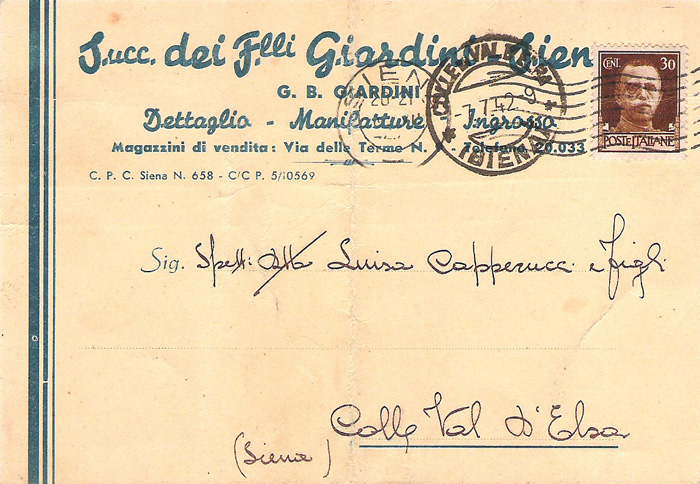 Succ. dei F.lli Giardini - Sien
G. B. GIARDINI
Dettaglio - Manifatture - Ingrosso
Magazzini di vendita: Via delle Terme N. Telefono 20.033
C. P. C. Siena N. 658 - C/C P. 5/10569
SIEN
20-21
COLLE VAL D'ELSA
-7.7.42-9
(SIENA)
CENT. 30
POSTE ITALIANE
Sig. Spett. Ditta Luisa Capperucci e figli
Colle Val d'Elsa
(Siena)